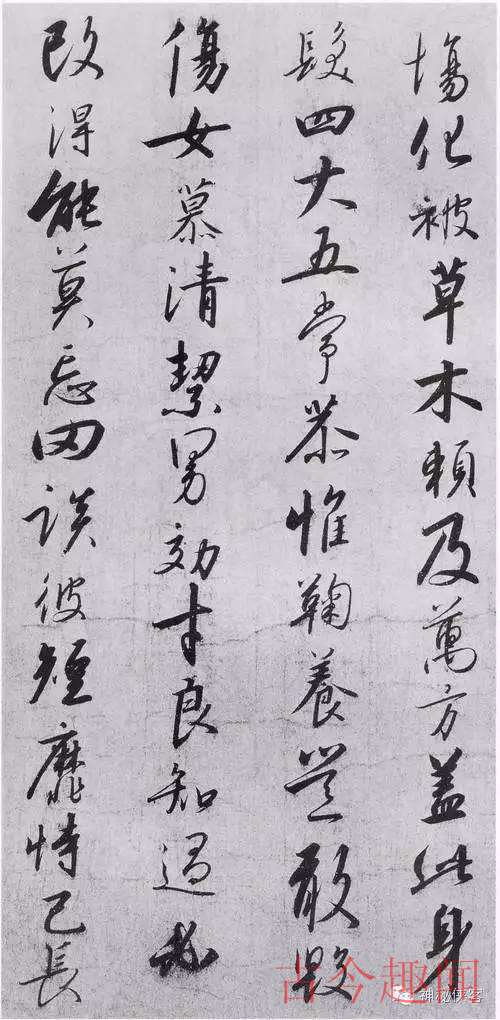 場化被草木賴及萬方盖此身
髮四大五常恭惟鞠養豈敢毀
傷女慕清絜男効才良知過必
改得能莫忘罔談彼短靡恃己長
古今趣闻
神秘侠客